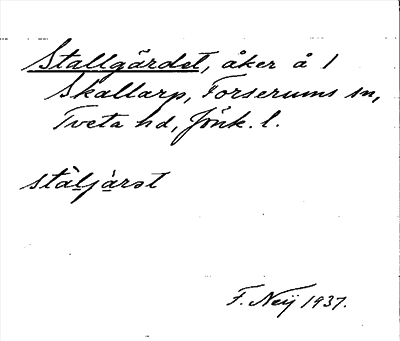 Stallgärdet, åker å 1
Skallarp, Forserums sn,
Tveta hd, Jönk. l.
stàljàrət
F. Neij 1937.